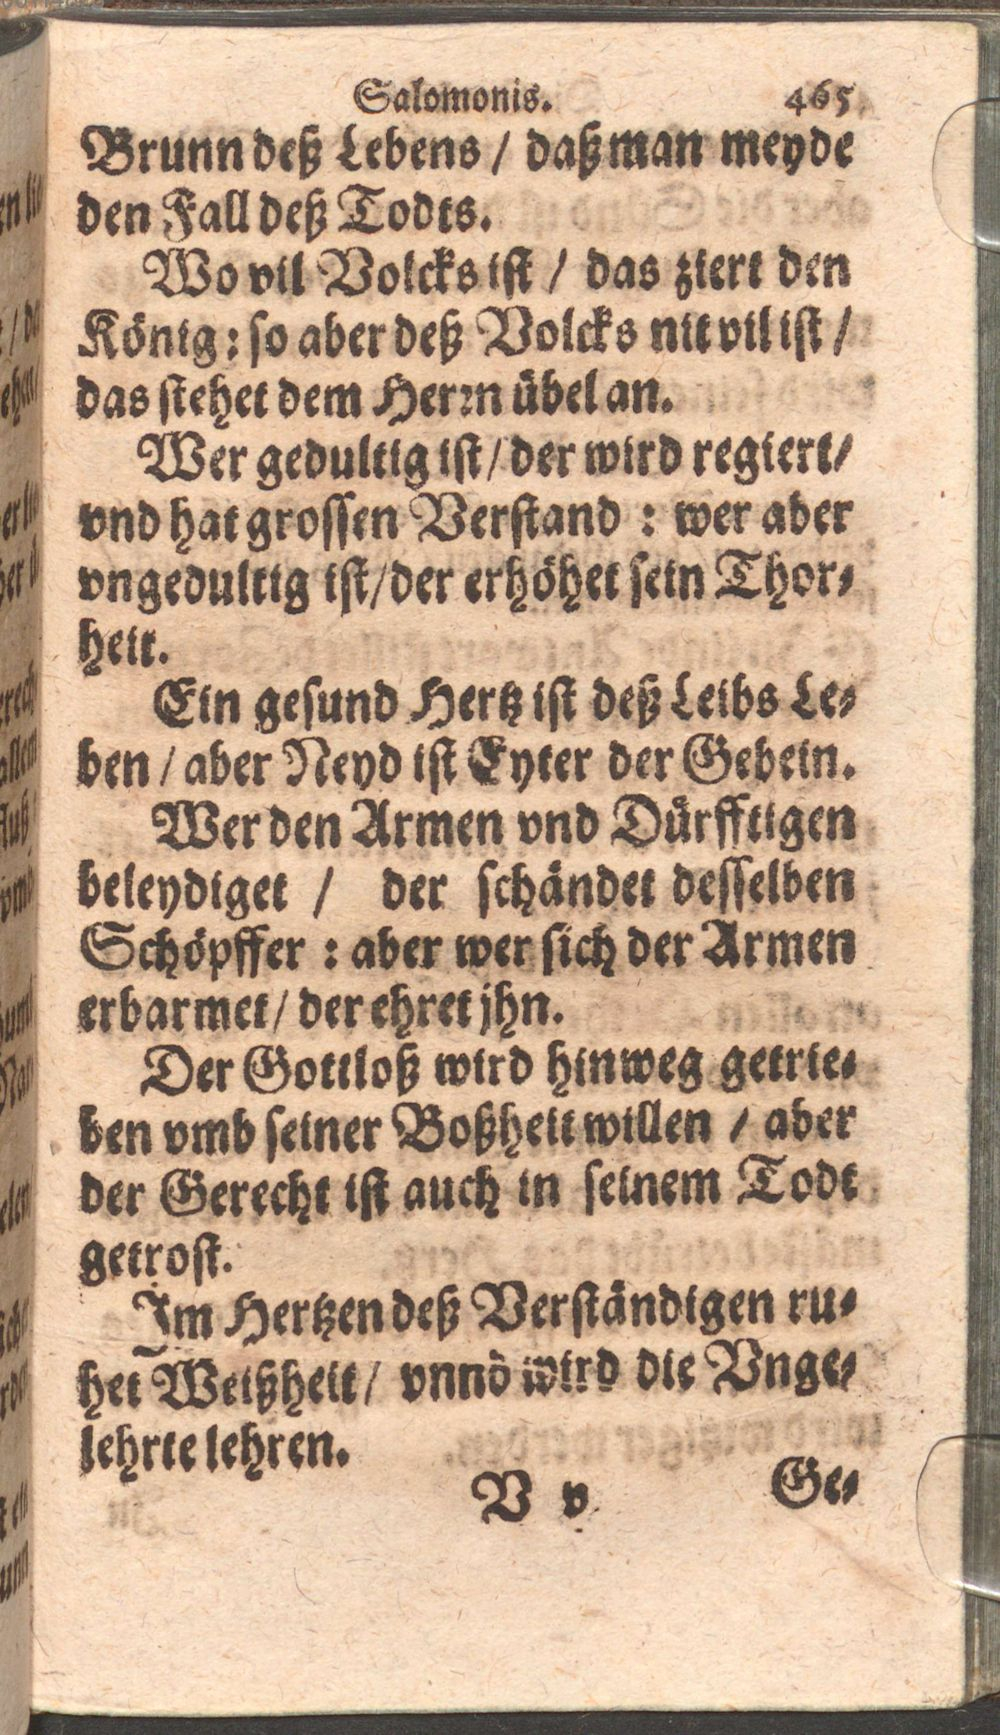 Salomonis. 465
Brunn deß Lebens / daß man meyde
den Fall deß Todts.
Wo vil Volcks ist / das ziert den
König: so aber deß Volcks nit vil ist /
das stehet dem Herrn übel an.
Wer gedultig ist / der wird regiert /
vnd hat grossen Verstand : wer aber
vngedultig ist / der erhöhet sein Thor-
heit.
Ein gesund Hertz ist deß Leibs Le-
ben / aber Neyd ist Eyter der Gebein.
Wer den Armen vnd Dürfftigen
beleydiget / der schändet desselben
Schöpffer : aber wer sich der Armen
erbarmet / der ehret jhn.
Der Gottloß wird hinweg getrie-
ben vmb seiner Boßheit willen / aber
der Gerecht ist auch in seinem Todt
getrost.
Im Hertzen deß Verständigen ru-
het Weißheit / vnnd wird die Vnge-
lehrte lehren.
V v Ge-